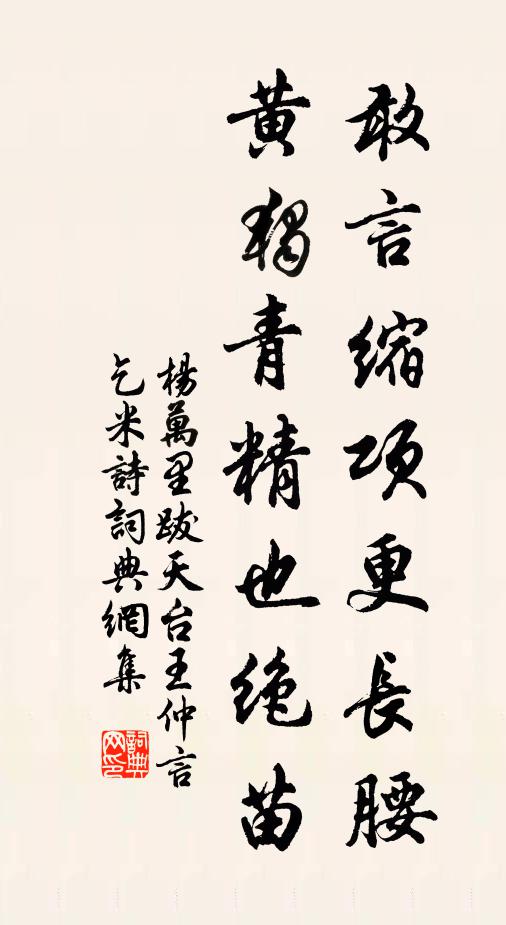 敢言縮項更長腰
黄獨青精也絶苗
楊萬里跋天台王仲言
乞米詩詞典網集
詞典网印